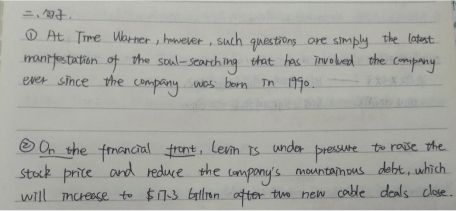 二、句子.
① At Time Warner, however, such questions are simply the latest
manifestation of the soul-searching that has involved the company
ever since the company was born in 1990.
② On the financial front, Levin is under pressure to raise the
stock price and reduce the company's mountainous debt, which
will increase to $17.3 billion after two new cable deals close.